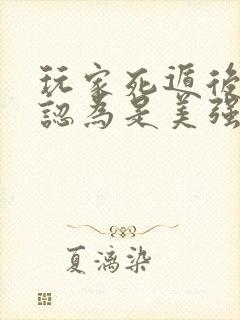 玩家死遁後
認為是美強
夏漓染